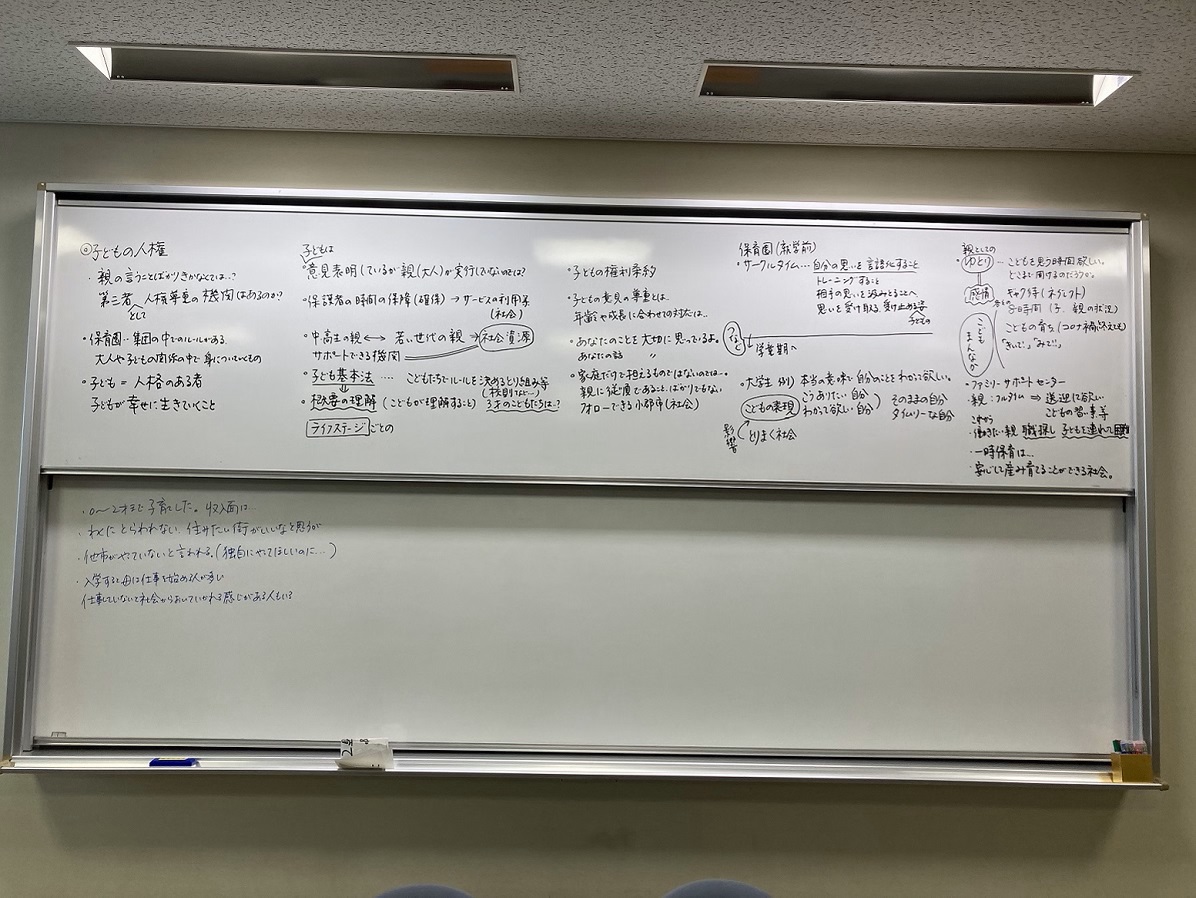 ◎子どもの人権
・親の言うことばかりきかなくては..?
第三者として 人権尊重の機関はあるのか?
・保育園‥集団の中でのルールがある
大人や子どもの関係の中で身についていくもの
・子ども = 人格のある者
子どもが幸せに生きていくこと
子どもは
・意見表明しているが親(大人)が実行していないのでは?
・保護者の時間の保障(確保) → サービスの利用等
(社会)
・中高生の親 ⟷ 若い世代の親 → 社会資源
サポートできる機関
・子ども基本法 ‥‥ こどもたちでルールを決めるとり組み等
(校則など…)
・概要の理解 (こどもが理解すること) 3才のこどもたちは‥?
ライフステージごとの
・子どもの権利条約
・子どもの意見の尊重とは、
年齢や成長に合わせての対応は…
・あなたのことを大切に思っているよ。
あなたの話 〃
・家庭だけで担えるものではないのでは…
親に従順であること、ばかりでもない
フォローできる小郡市(社会)
保育園(就学前)
・サークルタイム… 自分の思いを言語化すること
トレーニングすること
相手の思いを汲みとることへ
思いを受け取る、受け止める姿
子どもの
つなぐ
学童期へ
・大学生 例) 本当の意味で自分のことをわかって欲しい。
こどもの表現
こうありたい自分
わかって欲しい自分
そのままの自分
タイムリーな自分
影響
とりまく社会
親としての
・ゆとり ‥‥ こどもを思う時間欲しい。
どこまで聞けるのだろうか。
感情
ギャク待(ネグレクト)
(子、親の状況)
こどもまんなか
こどもの育ち
「きいて」、「みて!!」
・ファミリーサポートセンター
・親:フルタイム ⇒ 送迎に欲しい
こどもの習い事等
・働きたい親 職探し 子どもを連れて
・一時保育は…
・安心して産み育てることができる社会。
・0〜2才まで子育てした。収入面は…
・わくにとらわれない、住みたい街がいいなと思うが
・他市がやっていないと言われる。(独自にやってほしいのに…)
・入学すると母は仕事を始める人が多い
仕事していないと社会からおいていかれる感じがある人もいる